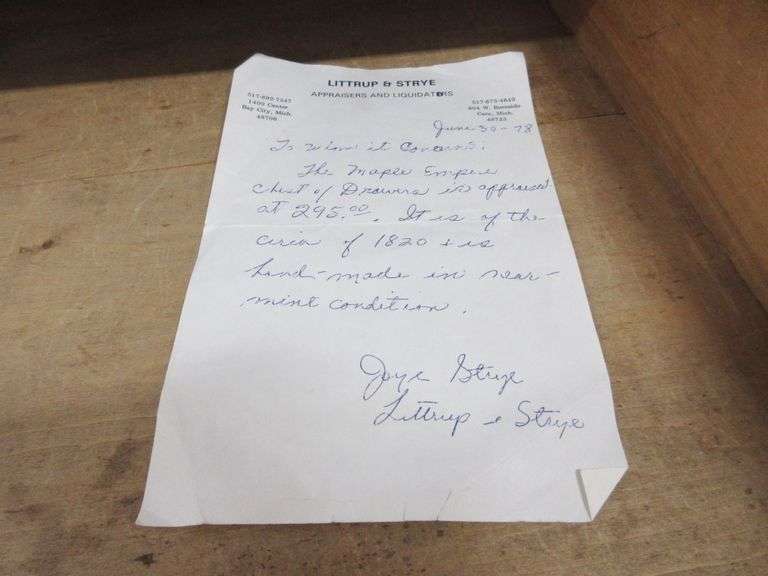 LITTRUP & STRYE
APPRAISERS AND LIQUIDATORS
1400 Center
Bay City, Mich.
48706
Caro, Mich.
48723
June 30-78
To Whom it Concerns:
The Maple Empire
Chest of Drawers is appraised
at 295.00. It is of the
circa of 1820 + is
hand-made in near-
mint condition.
Joye Strye
Littrup & Strye